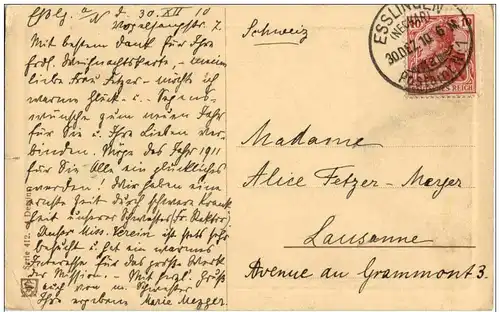 Eßlg. a/N d. 30. XII 10
Vogelsangstr. 7.
Mit bestem Dank für Ihre
frdl. Weihnachtskarte, meine
liebe Frau Fetzer – möchte ich
warme Glück- u. Segens-
wünsche zum neuen Jahr
für Sie u. Ihre Lieben ver-
binden. Möge das Jahr 1911
für Sie Alle ein glückliches
werden! Wir haben eine
ernste Zeit durch schwere Krank
heit unserer Schwester (Fr. Rektor)
Unser Miss. Verein ist stets sehr
besucht u. hat ein warmes
Interesse für das große Werk
der Mission – Mit herzl. Gruß
auch von m. Schwester
Ihre ergebene Marie Mezger
Serie 412.
Schweiz
ESSLINGEN
(NECKAR)
30.DEZ.10.
10
REICH
Madame
Alice Fetzer-Meyer
Lausanne
Avenue au Grammont 3.